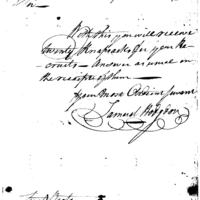 With this you will receive
Twenty Knapsacks for your Re-
cruits — Answer as usual on
the receipt of them —
Your Most Obedient Servant
Samuel Hodgdon